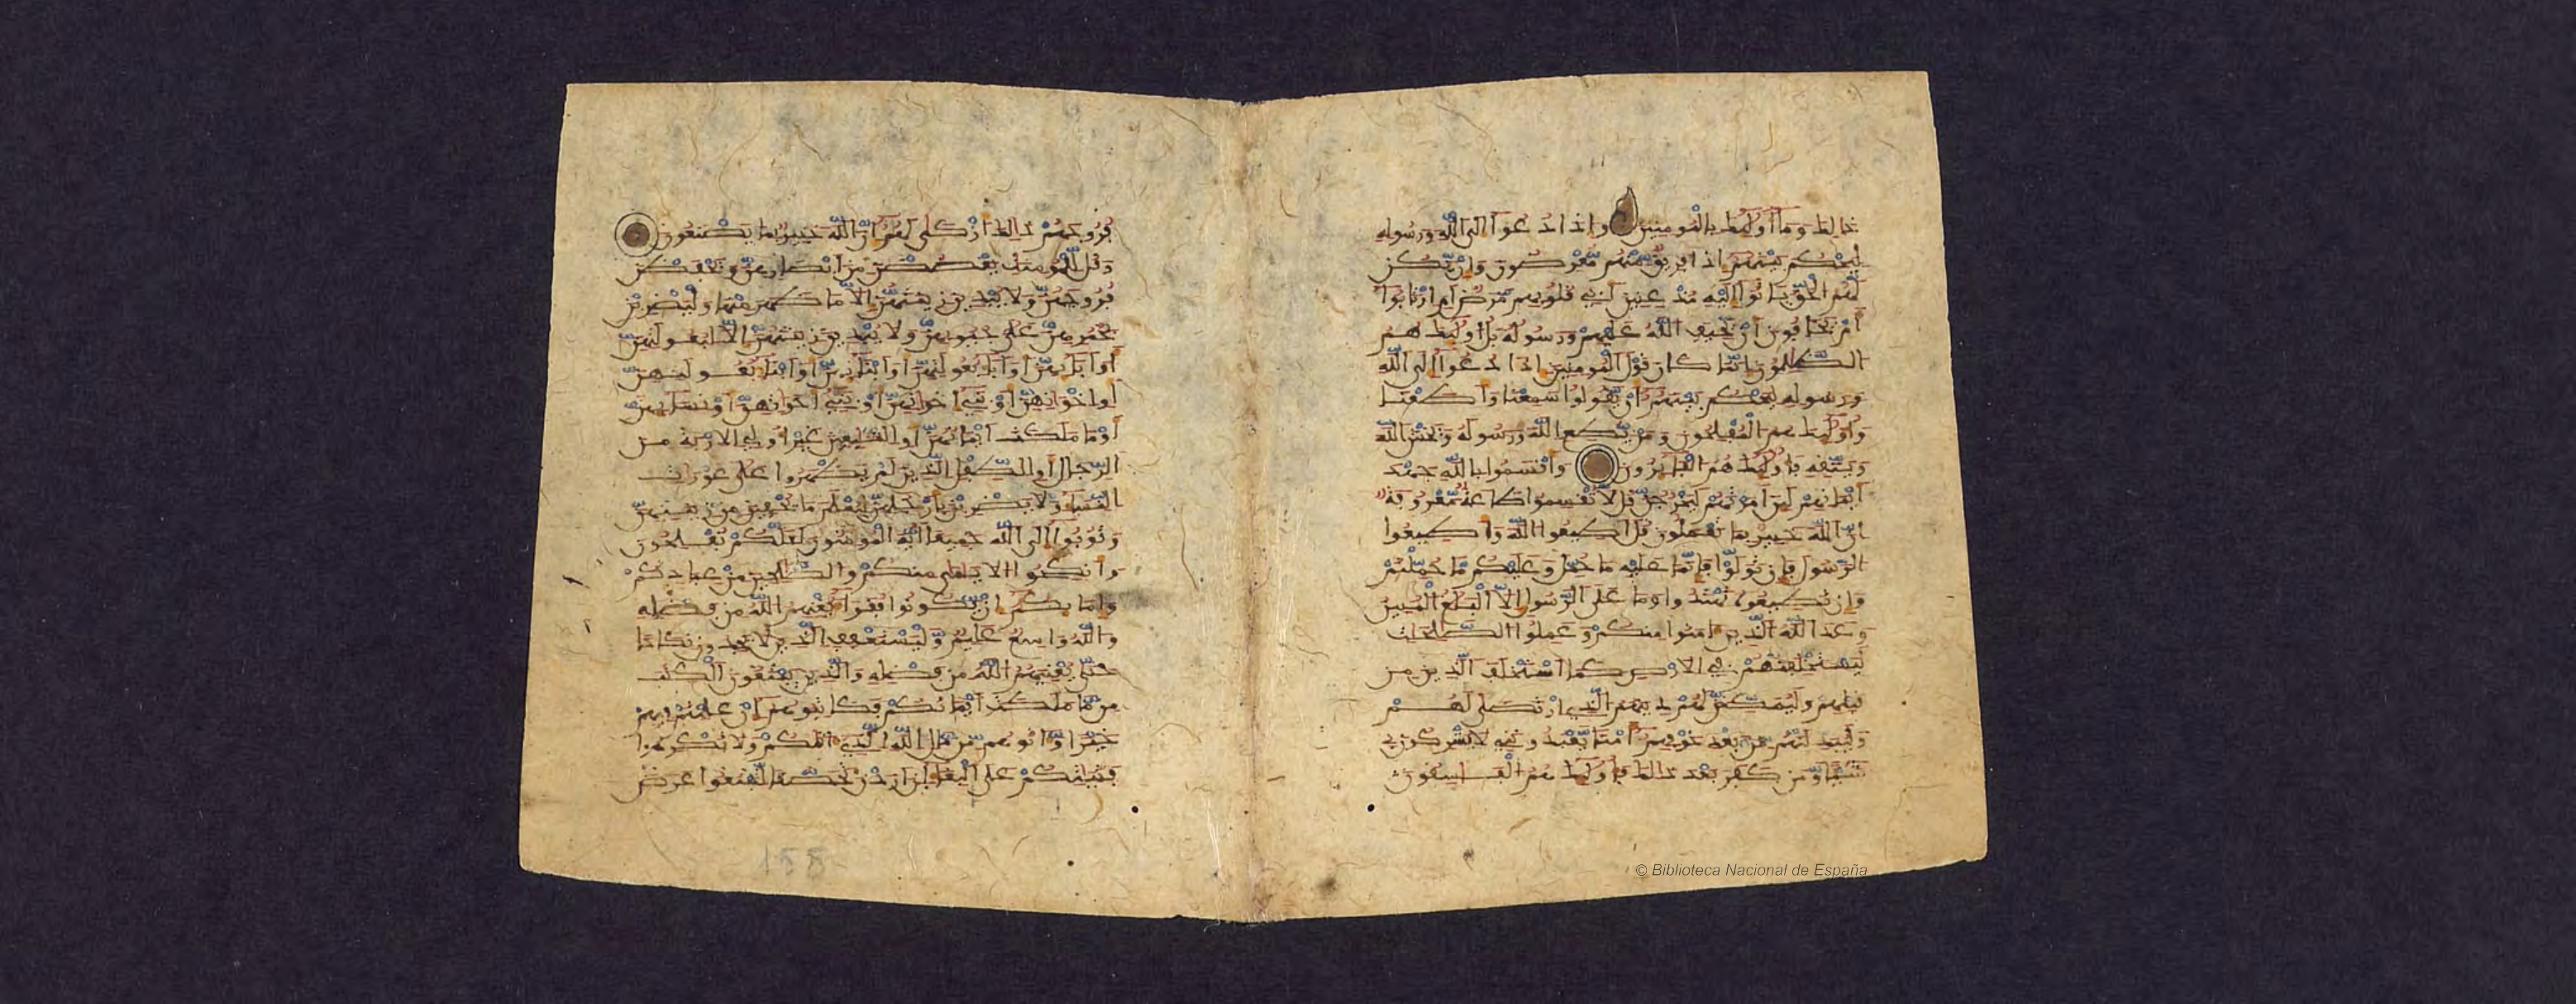 ذالك وما أولئك بالمومنين وإذا دعوا إلى الله ورسوله
ليحكم بينهم إذا فريق منهم معرضون وإن يكن
لهم الحق ياتوا إليه مذعنين أفي قلوبهم مرض أم ارتابوا
أم يخافون أن يحيف الله عليهم ورسوله بل أولئك هم
الظلمون إنما كان قول المومنين إذا دعوا إلى الله
ورسوله ليحكم بينهم أن يقولوا سمعنا وأطعنا
وأولئك هم المفلحون ومن يطع الله ورسوله ويخش الله
ويتقه فأولئك هم الفائزون وأقسموا بالله جهد
أيمانهم لئن أمرتهم ليخرجن قل لا تقسموا طاعة معروفة
إن الله خبير بما تعملون قل أطيعوا الله وأطيعوا
الرسول فإن تولوا فإنما عليه ما حمل وعليكم ما حملتم
وإن تطيعوه تهتدوا وما على الرسول إلا البلغ المبين
وعد الله الذين ءامنوا منكم وعملوا الصلحات
ليستخلفنهم في الارض كما استخلف الذين من
قبلهم وليمكنن لهم دينهم الذي ارتضى لهم
وليبدلنهم من بعد خوفهم أمنا يعبدونني لا يشركون بي
شيئا ومن كفر بعد ذالك فأولئك هم الفاسقون
فروجهم ذالك أزكى لهم إن الله خبير بما يصنعون
وقل للمومنت يغضضن من أبصارهن ويحفظن
فروجهن ولا يبدين زينتهن إلا ما ظهر منها وليضربن
بخمرهن على جيوبهن ولا يبدين زينتهن إلا لبعولتهن
أو ابائهن أو اباء بعولتهن أو ابنائهن أو ابناء بعولتهن
أو إخوانهن أو بني إخوانهن أو بني أخواتهن أو نسائهن
أو ما ملكت أيمانهن أو التابعين غير أولي الاربة من
الرجال أو الطفل الذين لم يظهروا على عورات
النساء ولا يضربن بأرجلهن ليعلم ما يخفين من زينتهن
وتوبوا إلى الله جميعا أيه المومنون لعلكم تفلحون
وأنكحوا الايامى منكم والصالحين من عبادكم
وإمائكم إن يكونوا فقراء يغنهم الله من فضله
والله واسع عليم وليستعفف الذين لا يجدون نكاحا
حتى يغنيهم الله من فضله والذين يبتغون الكتب
مما ملكت أيمانكم فكاتبوهم إن علمتم فيهم
خيرا وءاتوهم من مال الله الذي ءاتكم ولا تكرهوا
فتياتكم على البغاء إن أردن تحصنا لتبتغوا عرض
138
© Biblioteca Nacional de España